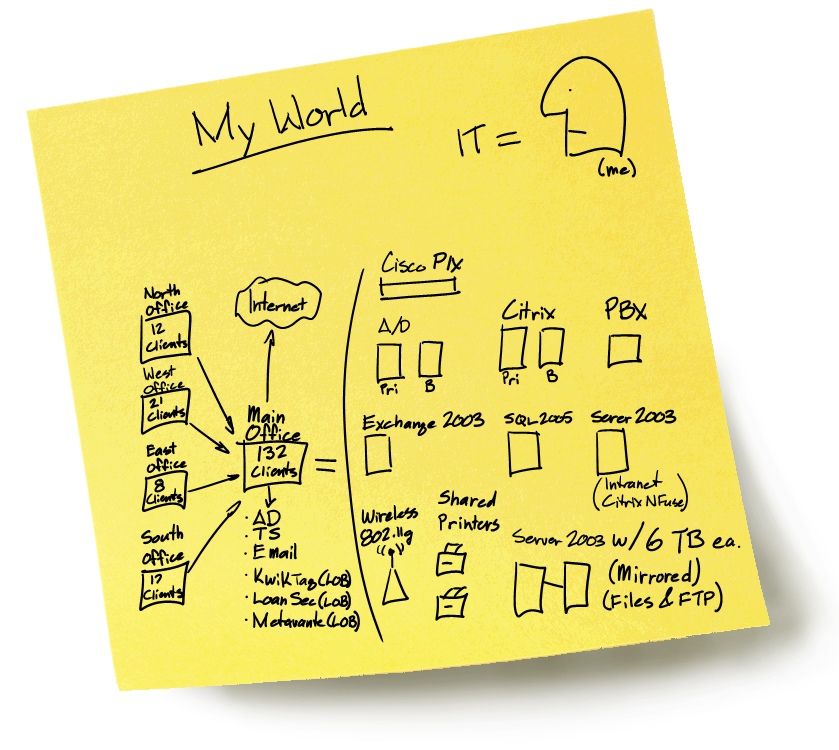 My World
IT =
(me)
North
office
12
Clients
West
office
21
Clients
East
office
8
Clients
South
Office
17
Clients
Internet
Main
Office
132
Clients
=
· AD
· TS
· Email
· KwikTag (LOB)
· LoanSec (LOB)
· Metavante (LOB)
Cisco PIX
A/D
Pri B
Citrix
Pri B
PBX
Exchange 2003
SQL2005
Serer 2003
(Intranet
Citrix NFuse)
Wireless
802.11g
Shared
Printers
Server 2003 w/6 TB ea.
(Mirrored)
(Files & FTP)